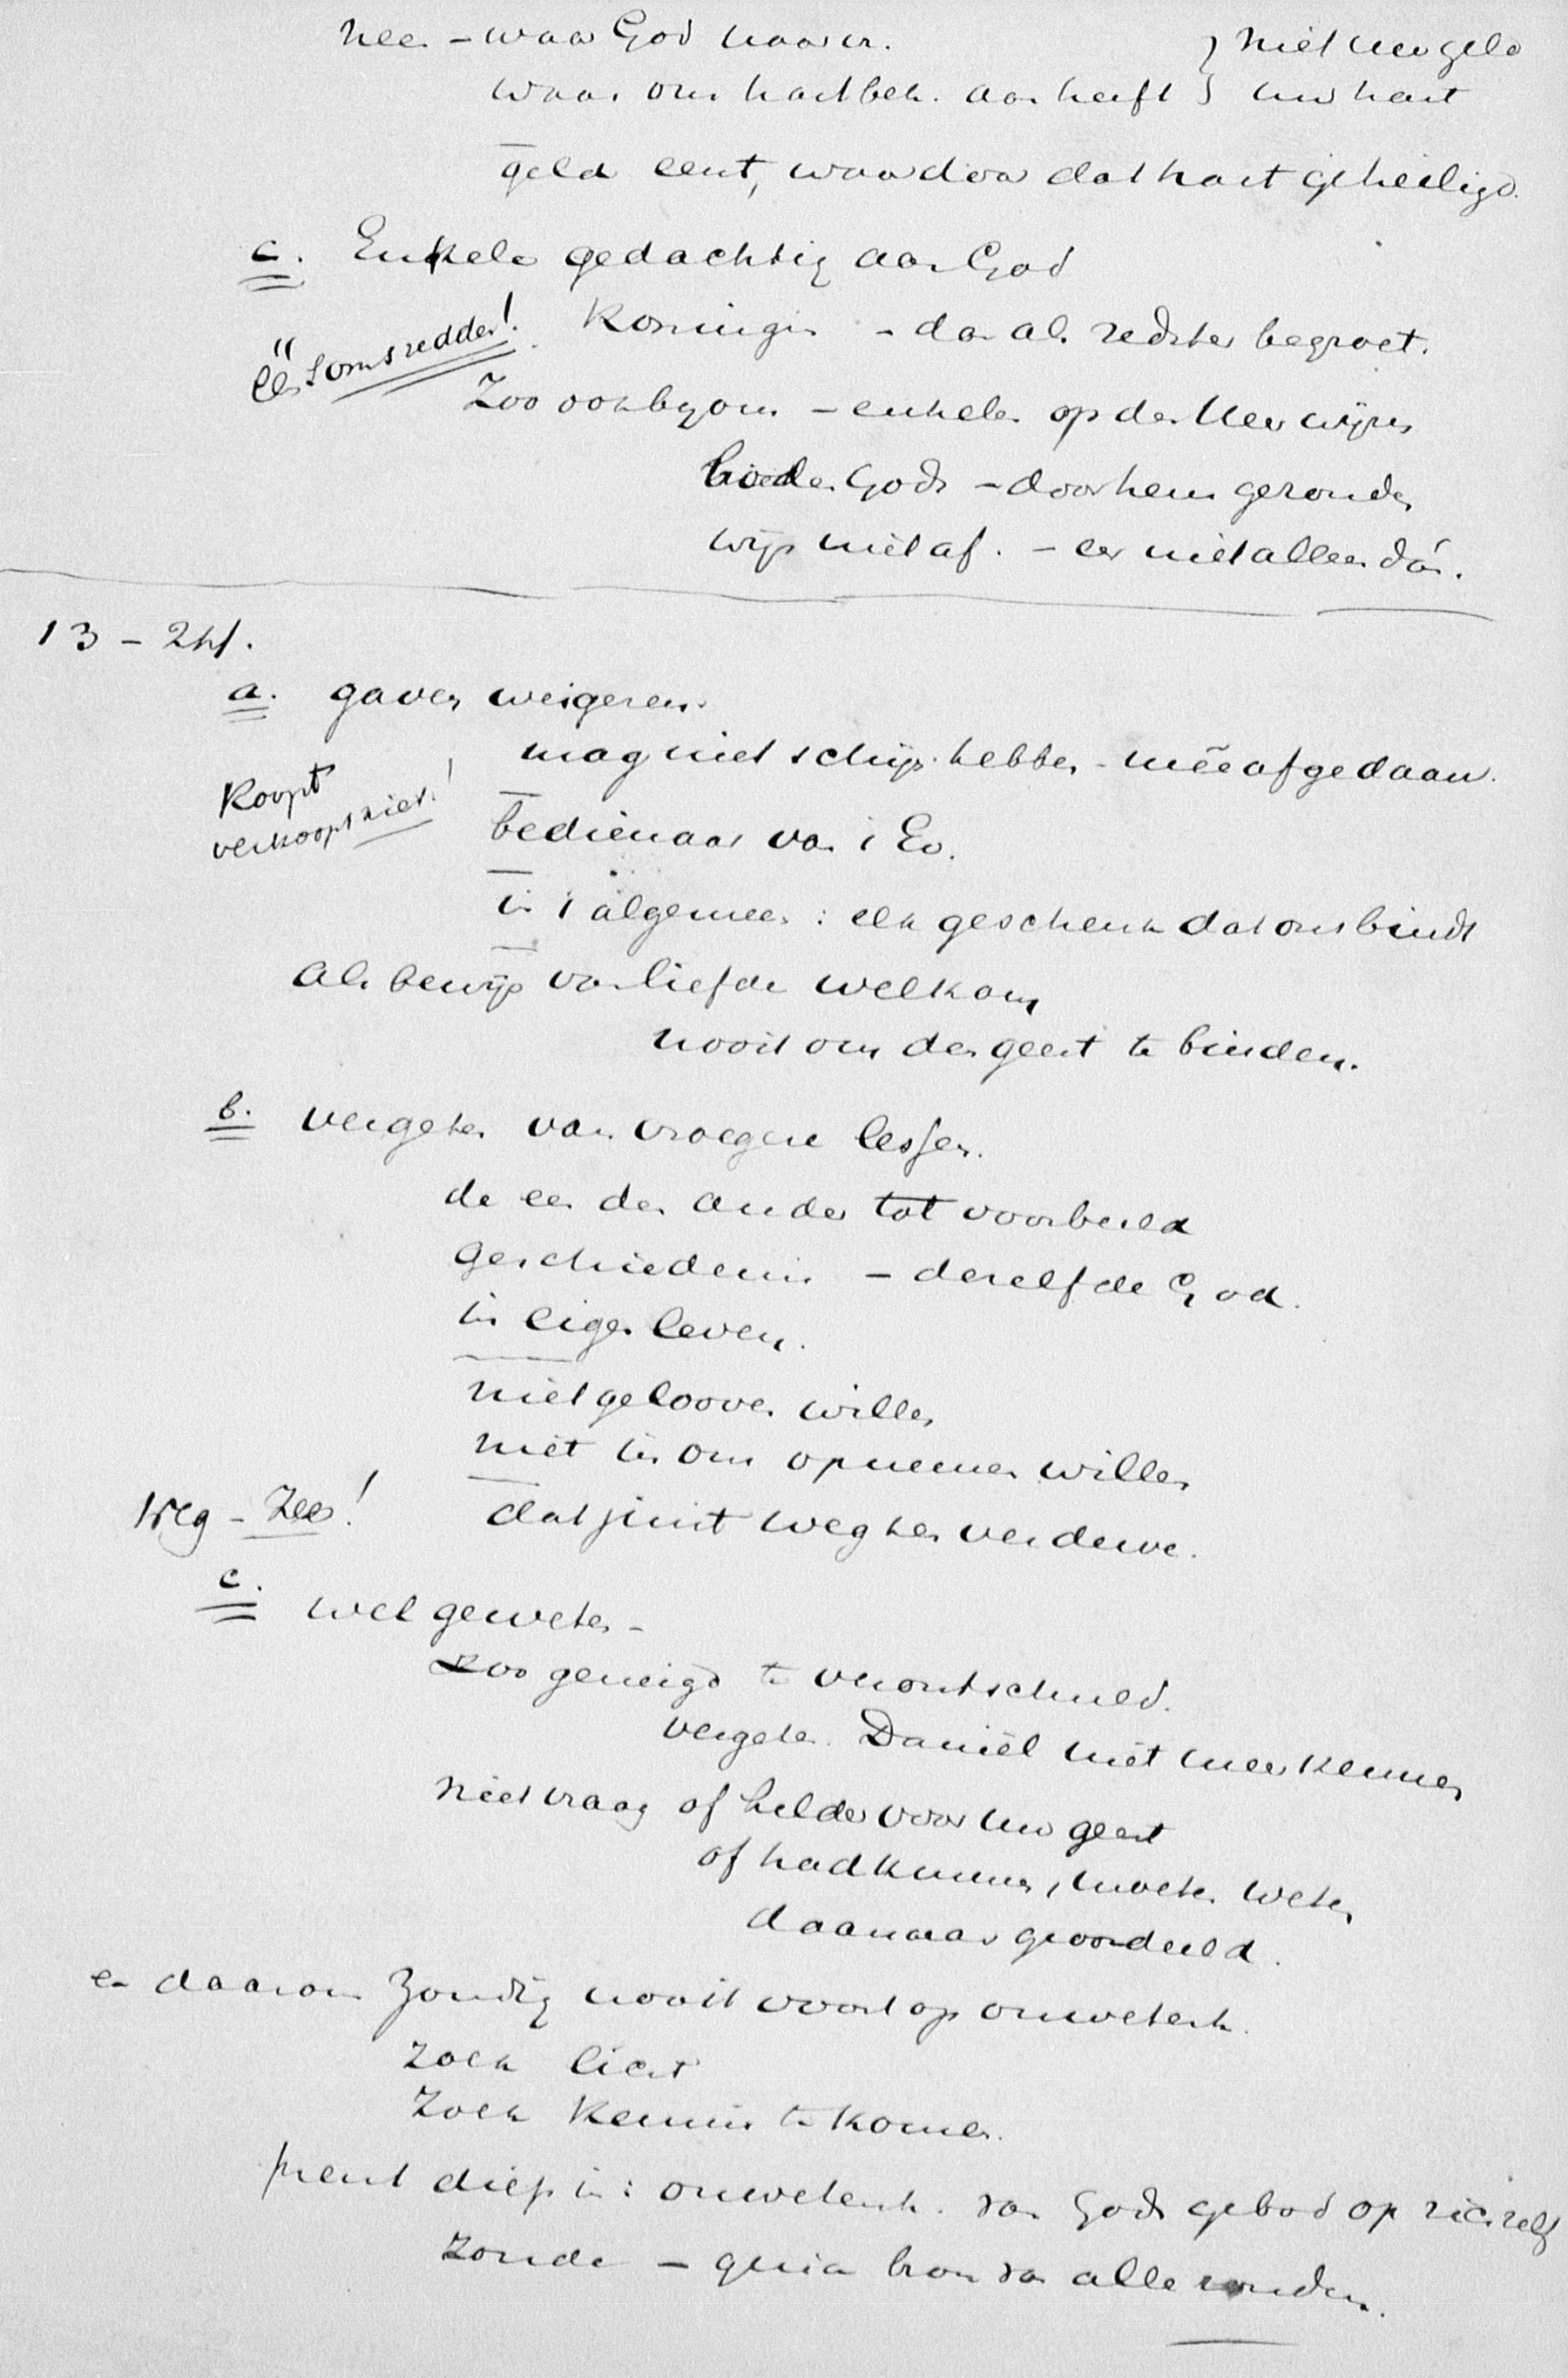 nee – waar God naar vr.
waar ons hart beh. aan heeft } niet uw geld
uw hart
geld eert, waardoor dat hart geheiligd.
c. Enkele gedachtig aan God
Koningin – dan als redster begroet.
één soms redder!
Zoo ook bij ons – enkelen op den Heer wijzen
boden Gods – door hem gezonden
wijs niet af. – en niet alleen dán.
13 – 24.
a. gaven weigeren.
mag niet schijn hebben – mêe afgedaan.
Koopt
verkoopt niet!
bedienaar van 't Ev.
in 't algemeen: elk geschenk dat ons bindt
als bewijs van liefde welkom
nooit om den geest te binden.
b. vergeten van vroegere lessen.
de een den ander tot voorbeeld
geschiedenis – dezelfde God.
in eigen leven.
niet gelooven willen
niet in ons opnemen willen
Weg – Zee!
dat juist weg ten verderve.
c. wel geweten –
zoo geneigd te verontschuld.
vergeten. Daniël niet meer kennen
niet vraag of helder voor uw geest
of had kunnen, moeten weten
daarnaar geoordeeld.
en daarom zondig nooit voort op onwetenh.
zoek licht
zoek kennis te komen.
prent diep in: onwetenh. van Gods gebod op zichzelf
zonde – quia bron van alle zonden.